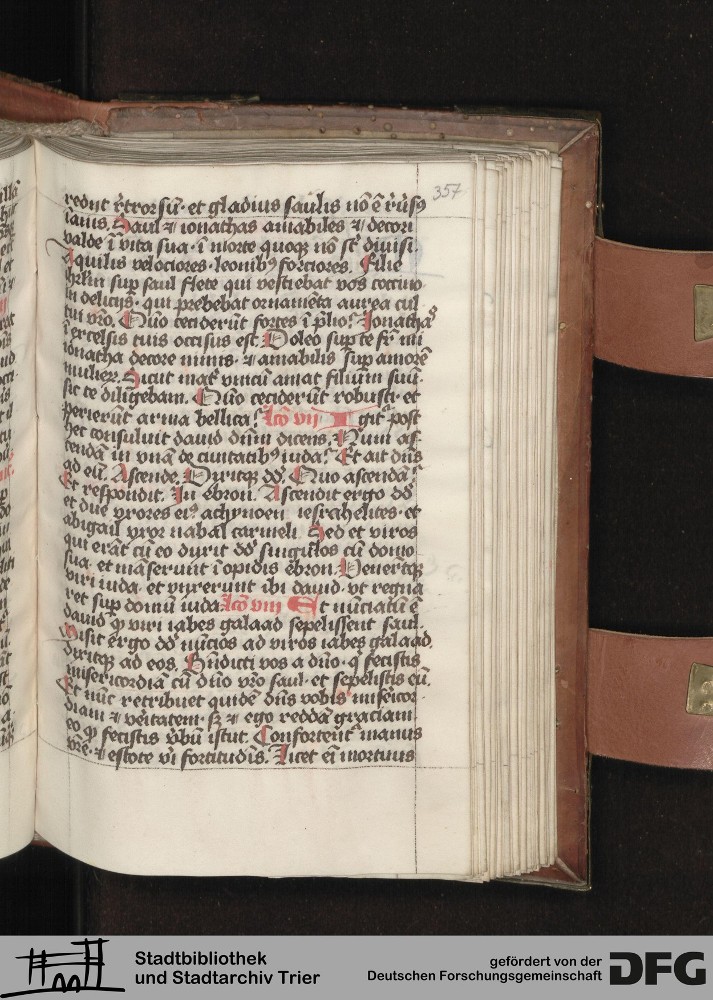 357
rediit r̄trorsū· et gladius saulis nō ē r̄ūsꝰ
īanis. Saul ⁊ ionathas amabiles ⁊ decori
valde ī vita sua· ī morte quoqꝫ nō st̄ diuisi
Aquilis velociores· leonibꝰ forciores. Filie
ihrl̄m sup saul flete qui vestiebat vos coccino
in delicijs· qui prebebat ornamēta aurea cul
tui vr̄o. Quō ceciderūt fortes ī p̄lio? Ionathas
ī excelsis tuis occisus est. Doleo sup te fr̄ mi
ionatha decore nimis· ⁊ amabilis sup amorē
mulieꝝ. Sicut mat̄ vnicū amat filium suū·
sic te diligebam. Quō ceciderūt robusti· et
perierūt arma bellica? lcō vij Igit̄ post
hec consuluit dauid dn̄m dicens. Num as
cendā in vnā de ciuitatibꝰ iuda? Et ait dn̄s
ad eū. Ascende. Dixitqꝫ dd̄. Quo ascendā?
Et respondit. In ebron. Ascendit ergo dd̄
et due vxores eiꝰ achynoen iesrahelites· et
abigail vxor nabal carmeli. Sed et viros
qui erāt cū eo duxit dd̄ singulos cū domo
sua· et māserunt ī opidis ebron. Venerūtqꝫ
viri iuda· et vnxerunt ibi dauid· vt regna
ret sup domū iuda. lcō viij Et nūciatū ē
dauid ꝙ viri iabes galaad sepelissent saul.
Misit ergo dd̄ nūcios ad viros iabes galaad.
dixitqꝫ ad eos. Bn̄dicti vos a dn̄o· q̄ fecistis
misericordiā cū dn̄o vr̄o saul· et sepelistis eū.
Et nūc retribuet quidē dn̄s vobis misericor
diam ⁊ veritatem· sꝫ ⁊ ego reddā graciam
eo ꝙ fecistis v̄bū istut. Confortent̄ manus
vr̄e· ⁊ estote vi fortitudis. Licet ei̅ mortuus
Stadtbibliothek
und Stadtarchiv Trier
gefördert von der
Deutschen Forschungsgemeinschaft
DFG